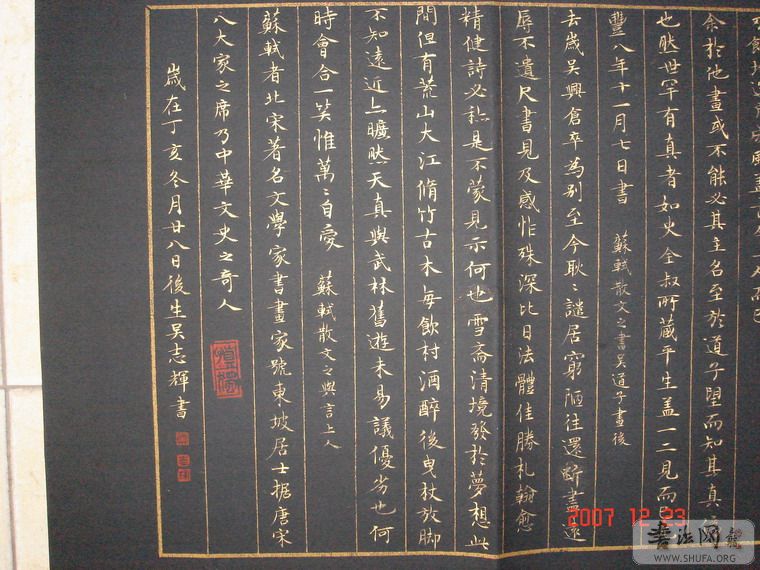 余於他畫或不能必其主名至於道子望而知其真
也然世罕有真者如史全叔所藏平生蓋一二見而
豐八年十一月七日書 蘇軾散文之書吳道子畫後
去歲吳興倉卒為別至今耿〻譴居窮陋往還斷盡遠
辱不遺尺書見及感怍殊深比日法體佳勝札翰愈
精健詩必稱是不蒙見示何也雪齋清境發於夢想此
間但有荒山大江脩竹古木每飲村酒醉後曳杖放腳
不知遠近亦曠然天真與武林舊遊未易議優劣也何
時會合一笑惟萬〻自愛 蘇軾散文之與言上人
蘇軾者北宋著名文學家書畫家號東坡居士据唐宋
八大家之席乃中華文史之奇人
歲在丁亥冬月廿八日後生吳志輝書
2007 12 23
書法网
WWW.SHUFA.ORG